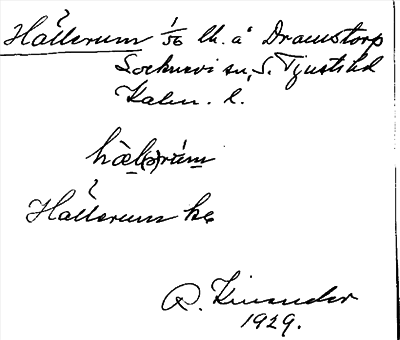 Hällerum 1/56 lh. å Dramstorp
Locknevi sn, S. Tjust hd
Kalm. l.
hæl(ə)rúm
Hällerum ks
R. Kinander
1929.